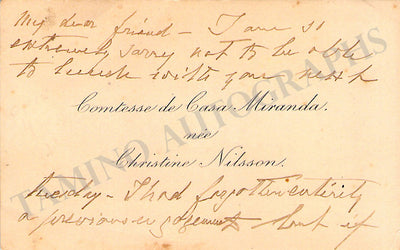 My dear friend – I am so
extremely sorry not to be able
to lunch with you next
Comtesse de Casa Miranda.
née
Christine Nilsson.
tuesday – I had forgotten entirely
a previous engagement – but if
TAMINO AUTOGRAPHS